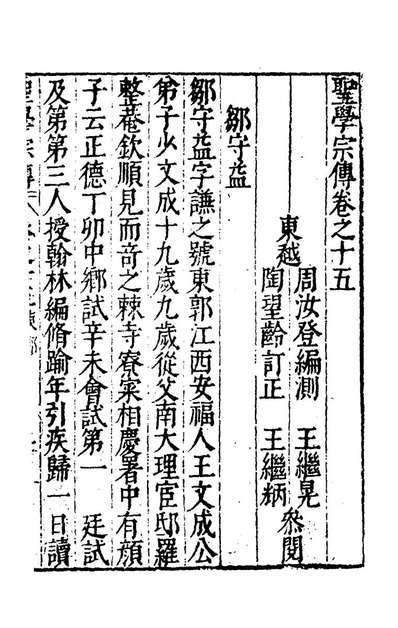 聖學宗傳卷之十五
東越 周汝登編測 王繼晃
陶望齡訂正 王繼炳 叅閱
鄒守益
鄒守益字謙之號東郭江西安福人王文成公
弟子少文成十九歲九歲從父南大理宦邸羅
整菴欽順見而奇之棘寺寮寀相慶署中有顔
子云正德丁卯中鄉試辛未會試第一 廷試
及第第三人授翰林編脩踰年引疾歸一日讀
聖學宗傳